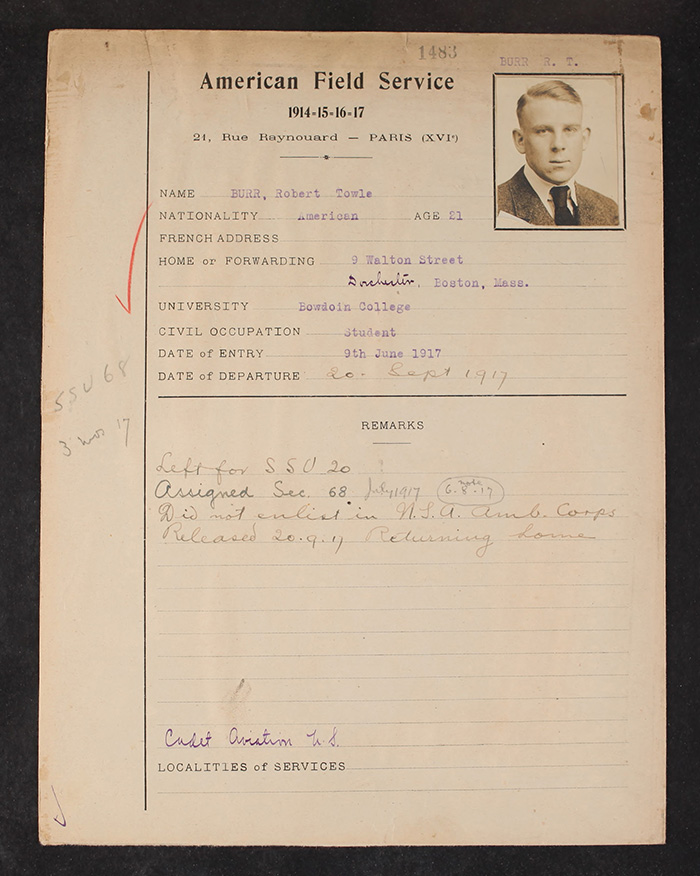 1483
BURR R. T.
American Field Service
1914-15-16-17
21, Rue Raynouard — PARIS (XVIe)
NAME BURR, Robert Towle
NATIONALITY American AGE 21
FRENCH ADDRESS
HOME or FORWARDING 9 Walton Street
Dorchester, Boston, Mass.
UNIVERSITY Bowdoin College
CIVIL OCCUPATION Student
DATE of ENTRY 9th June 1917
DATE of DEPARTURE 20. Sept 1917
SSU 68
3 mos 17
REMARKS
Left for SSU 20
Assigned Sec. 68 July 1917 note 6.8.17
Did not enlist in U.S.A. Amb. Corps
Released 20.9.17 Returning home
Cadet Aviation U.S.
LOCALITIES of SERVICES